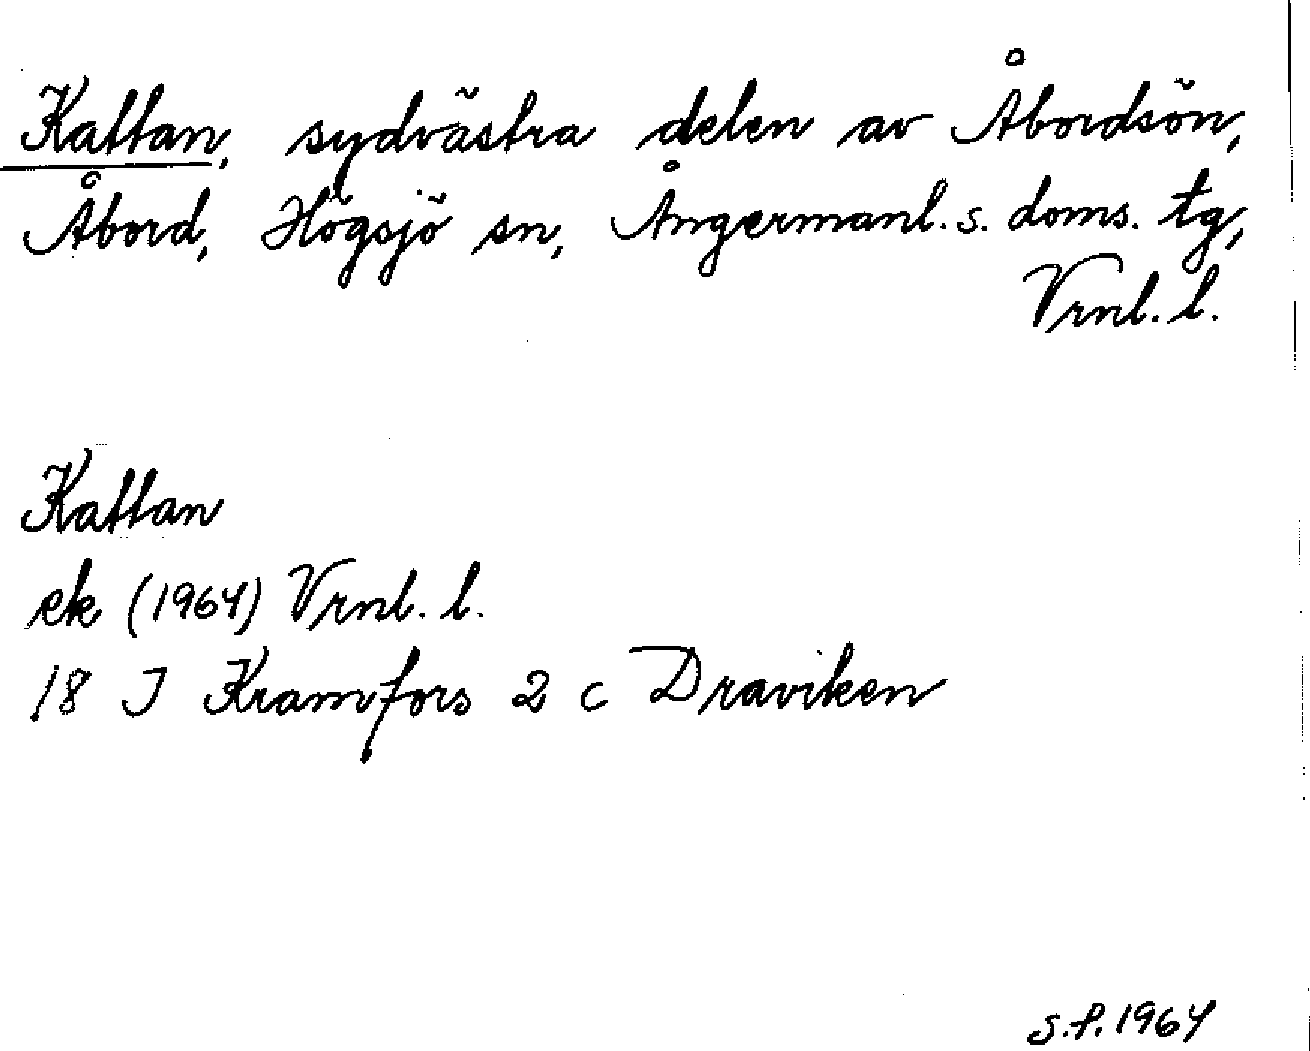 Kattan, sydvästra delen av Åbordsön,
Åbord, Högsjö sn, Ångermanl. s. doms. tg,
Vrnl. l.
Kattan
ek (1964) Vrnl. l.
18 J Kramfors 2 c Draviken
S.F. 1964